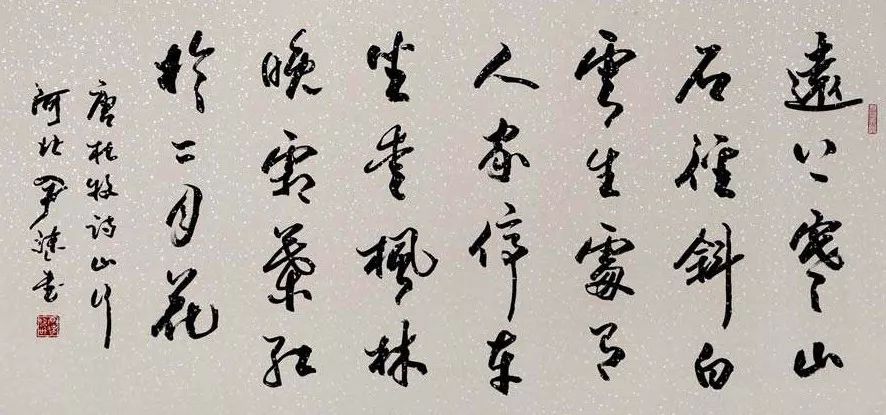 遠上寒山
石徑斜白
雲生處有
人家停車
坐愛楓林
晚霜葉紅
於二月花
唐杜牧詩山行
河北書